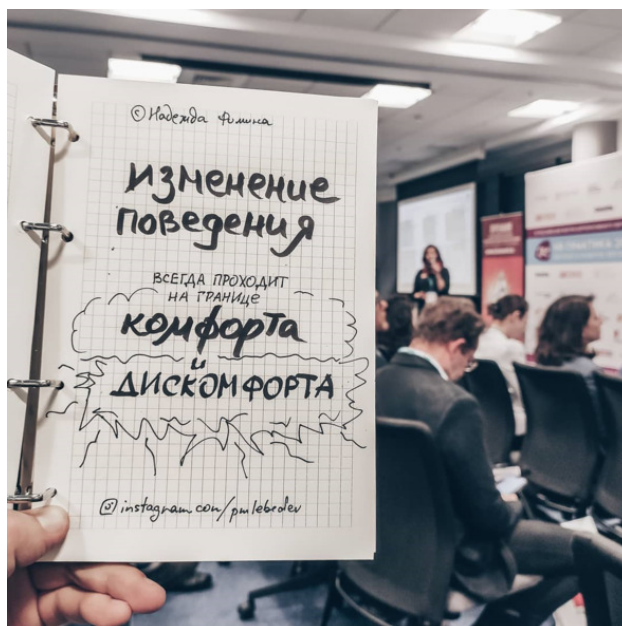 © Надежда Фомина
Изменение
поведения
ВСЕГДА ПРОХОДИТ
НА ГРАНИЦЕ
комфорта
и
ДИСКОМФОРТА
instagram.com/pmlebedev